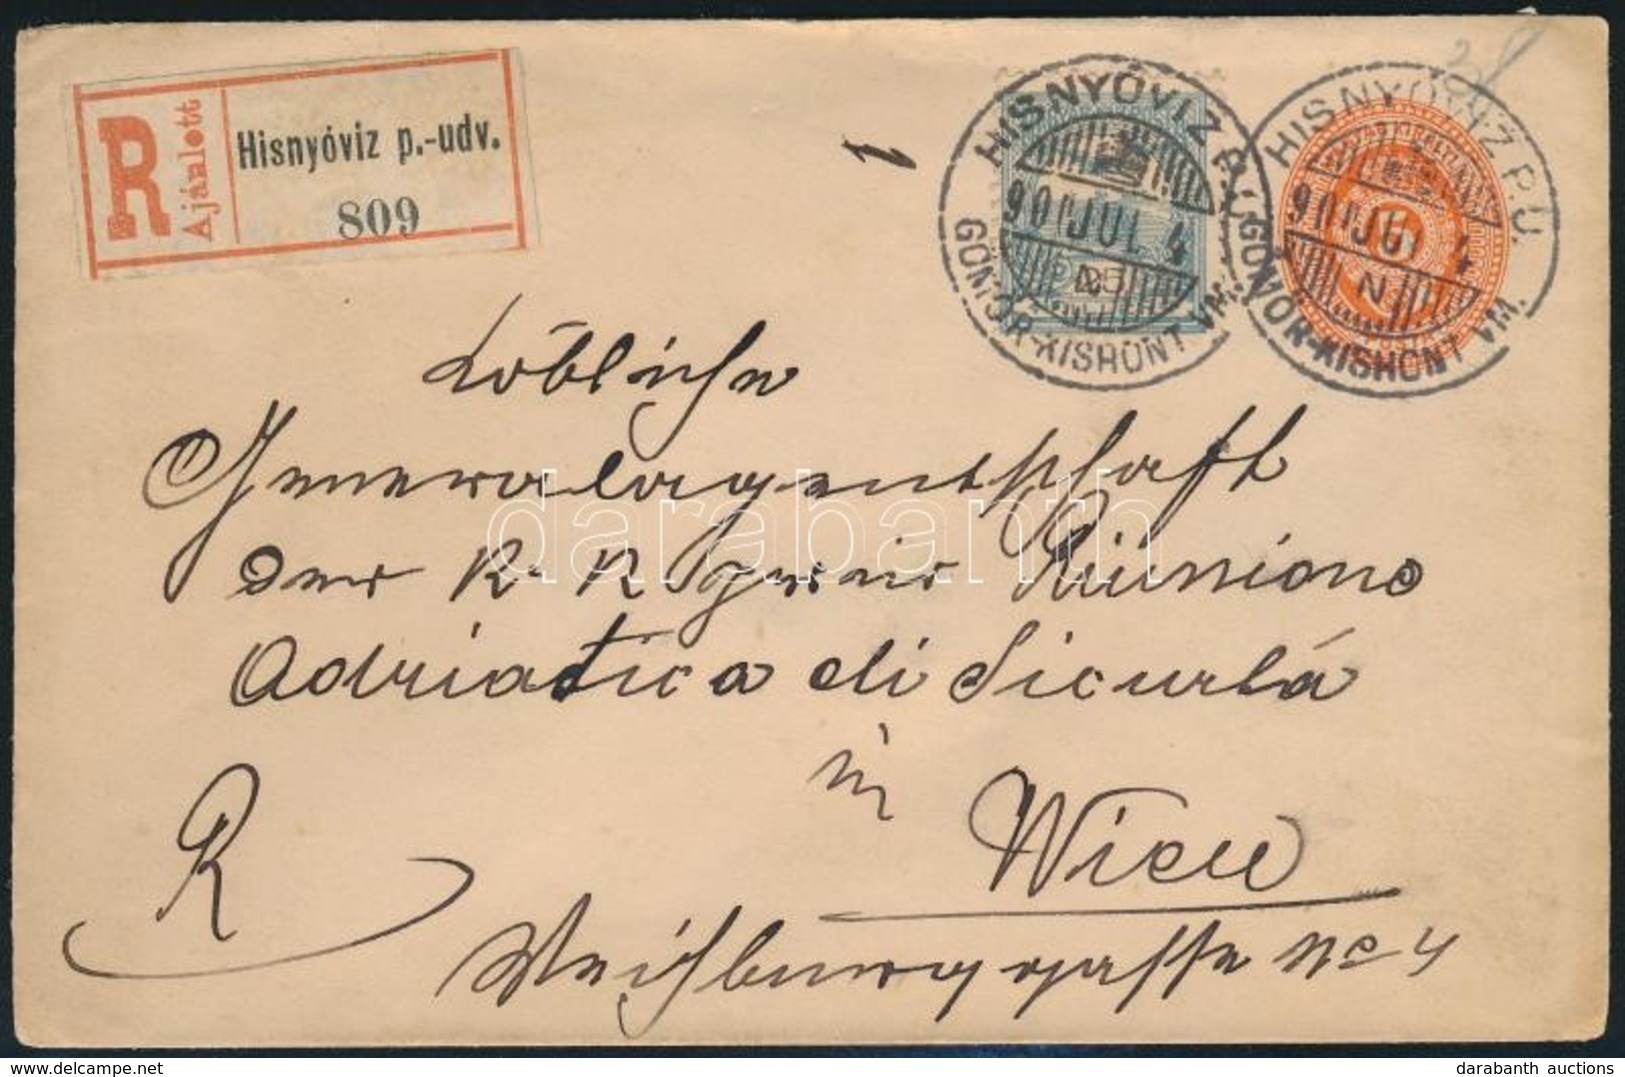 R Ajánlott
Hisnyóviz p.-udv.
809
HISNYÓVIZ P.U.
900 JUL 4
N
GÖMÖR-KISHONT VM.
HISNYÓVIZ P.U.
900 JUL 4
N
GÖMÖR-KISHONT VM.
Löbliche
Generalagentschaft
der K. K. priv Riunione
Adriatica di Sicurtá
in
Wien
R
Weihburggasse No 4
darabanth
darabanth auctions